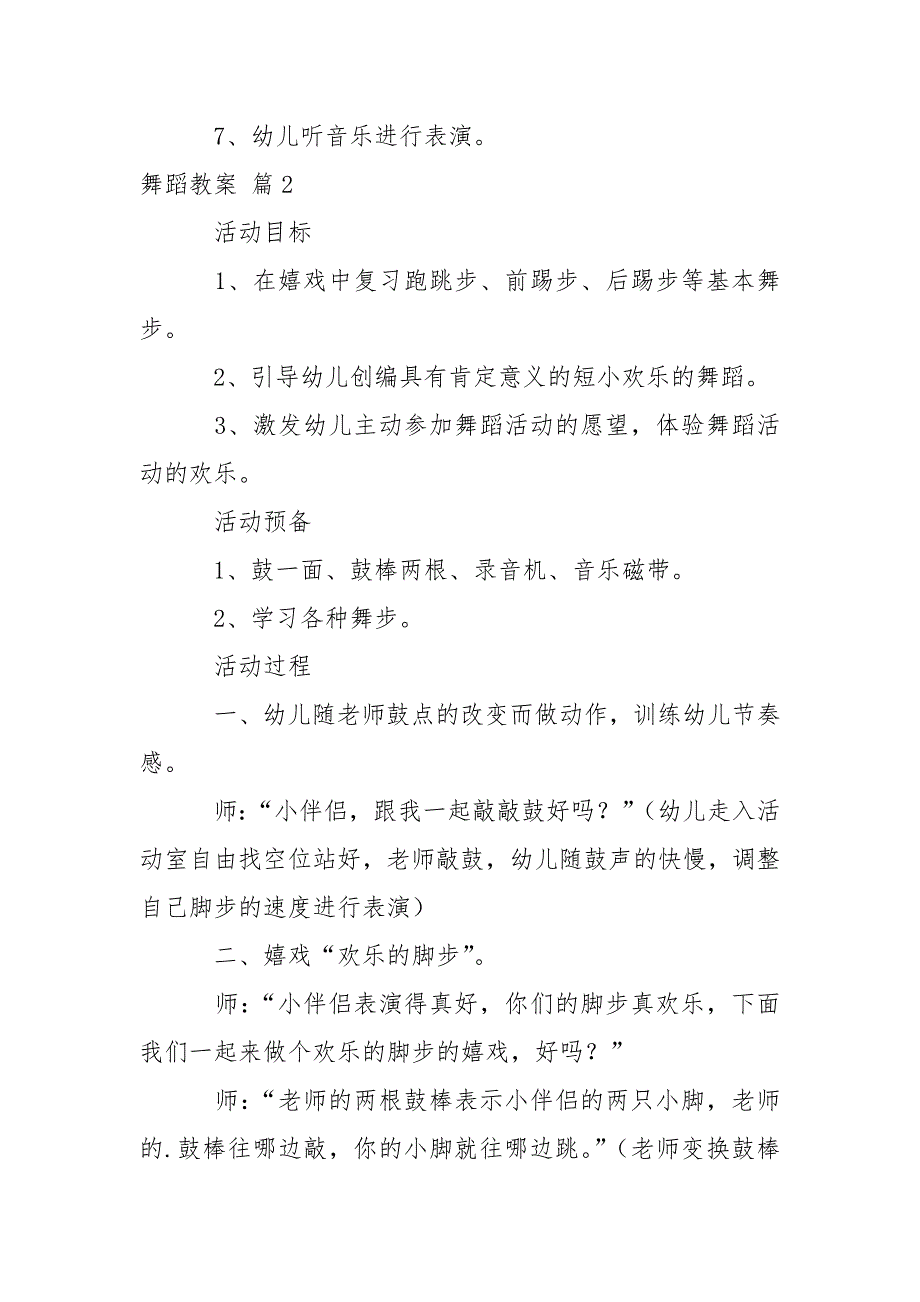 7、幼儿听音乐进行表演。
舞蹈教案 篇2
活动目标
1、在嬉戏中复习跑跳步、前踢步、后踢步等基本舞
步。
2、引导幼儿创编具有肯定意义的短小欢乐的舞蹈。
3、激发幼儿主动参加舞蹈活动的愿望，体验舞蹈活
动的欢乐。
活动预备
1、鼓一面、鼓棒两根、录音机、音乐磁带。
2、学习各种舞步。
活动过程
一、幼儿随老师鼓点的改变而做动作，训练幼儿节奏
感。
师：“小伴侣，跟我一起敲敲鼓好吗？”（幼儿走入活
动室自由找空位站好，老师敲鼓，幼儿随鼓声的快慢，调整
自己脚步的速度进行表演）
二、嬉戏“欢乐的脚步”。
师：“小伴侣表演得真好，你们的脚步真欢乐，下面
我们一起来做个欢乐的脚步的嬉戏，好吗？”
师：“老师的两根鼓棒表示小伴侣的两只小脚，老师
的.鼓棒往哪边敲，你的小脚就往哪边跳。”（老师变换鼓棒